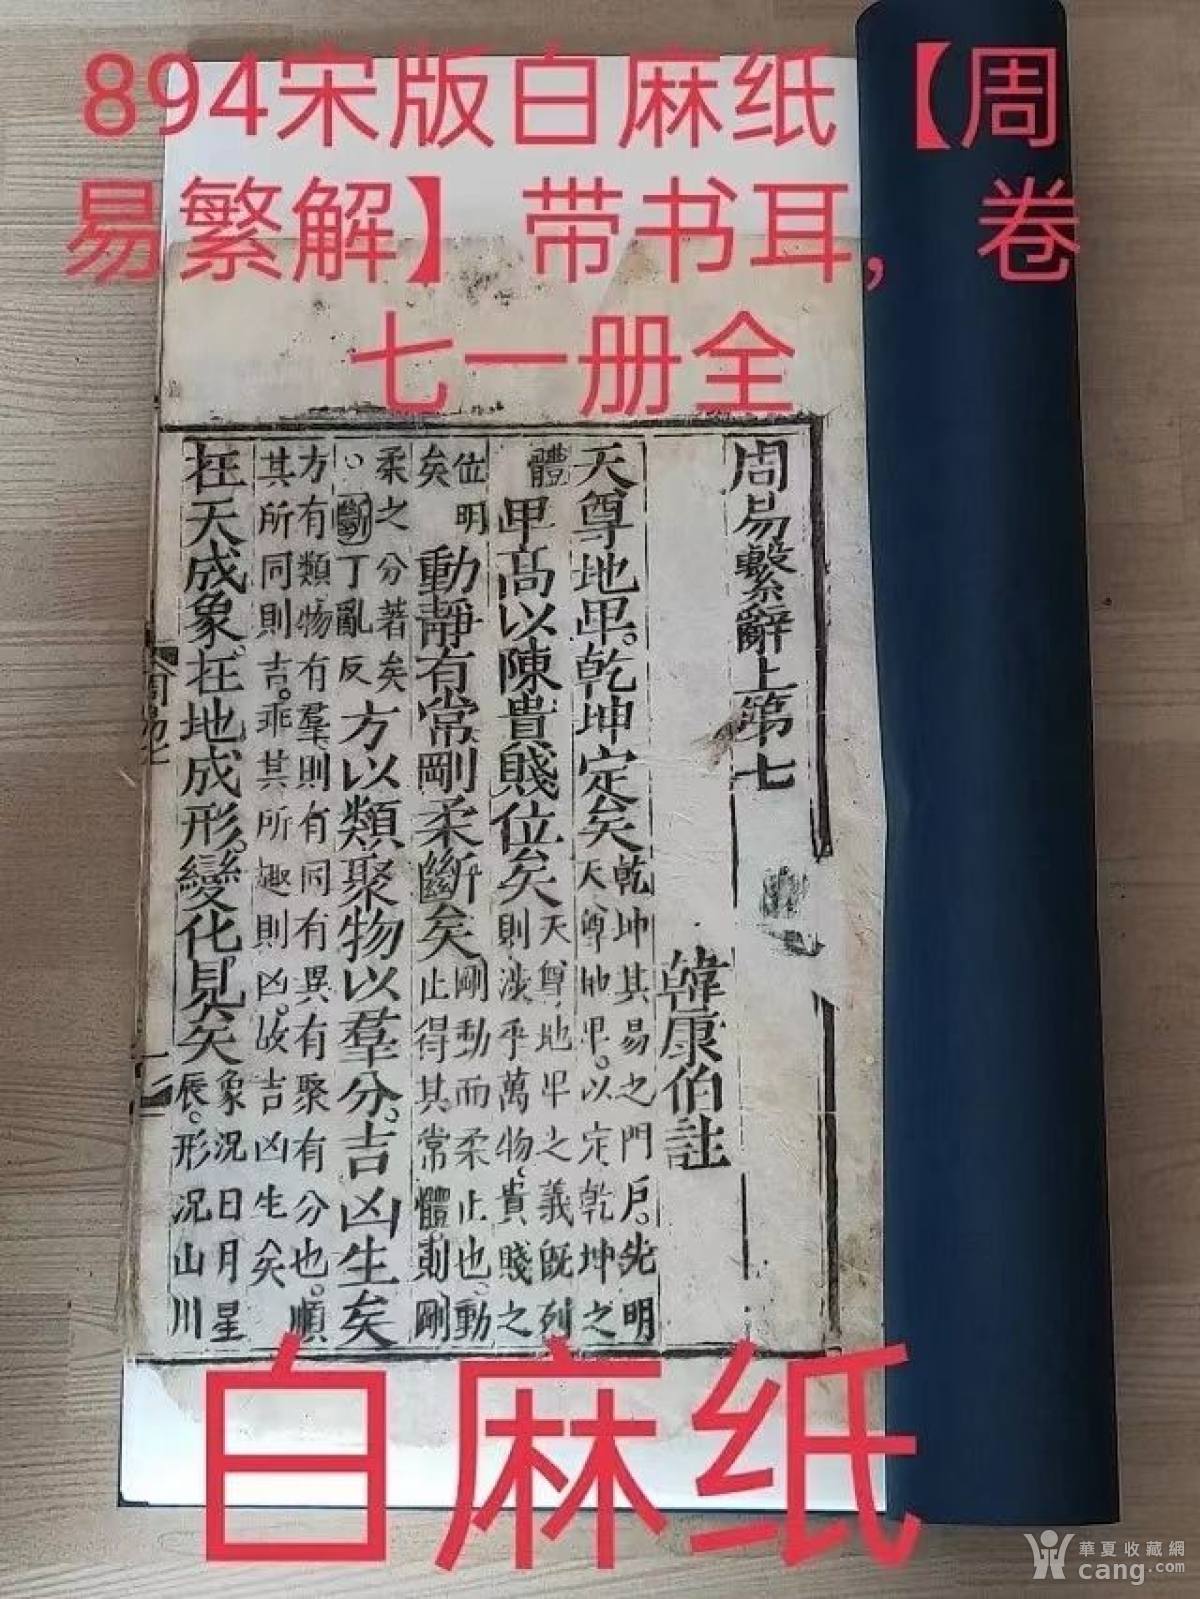 894宋版白麻纸【周
易繁解】带书耳，卷
七一册全
周易繫辭上第七
韓康伯註
天尊地卑。乾坤定矣乾坤其易之門戶。先明天尊地卑。以定乾坤之
體卑高以陳貴賤位矣天尊地卑之義旣列則涉乎萬物貴賤之
位明矣動靜有常剛柔斷矣剛動而柔止也。動止得其常體則剛
柔之分著矣。斷丁亂反方以類聚物以羣分。吉凶生矣
方有類。物有羣則有同有異有聚有分也。順其所同則吉。乖其所趣則凶。故吉凶生矣
在天成象。在地成形。變化見矣象況日月星辰。形況山川
白麻纸
華夏收藏網
cang.com